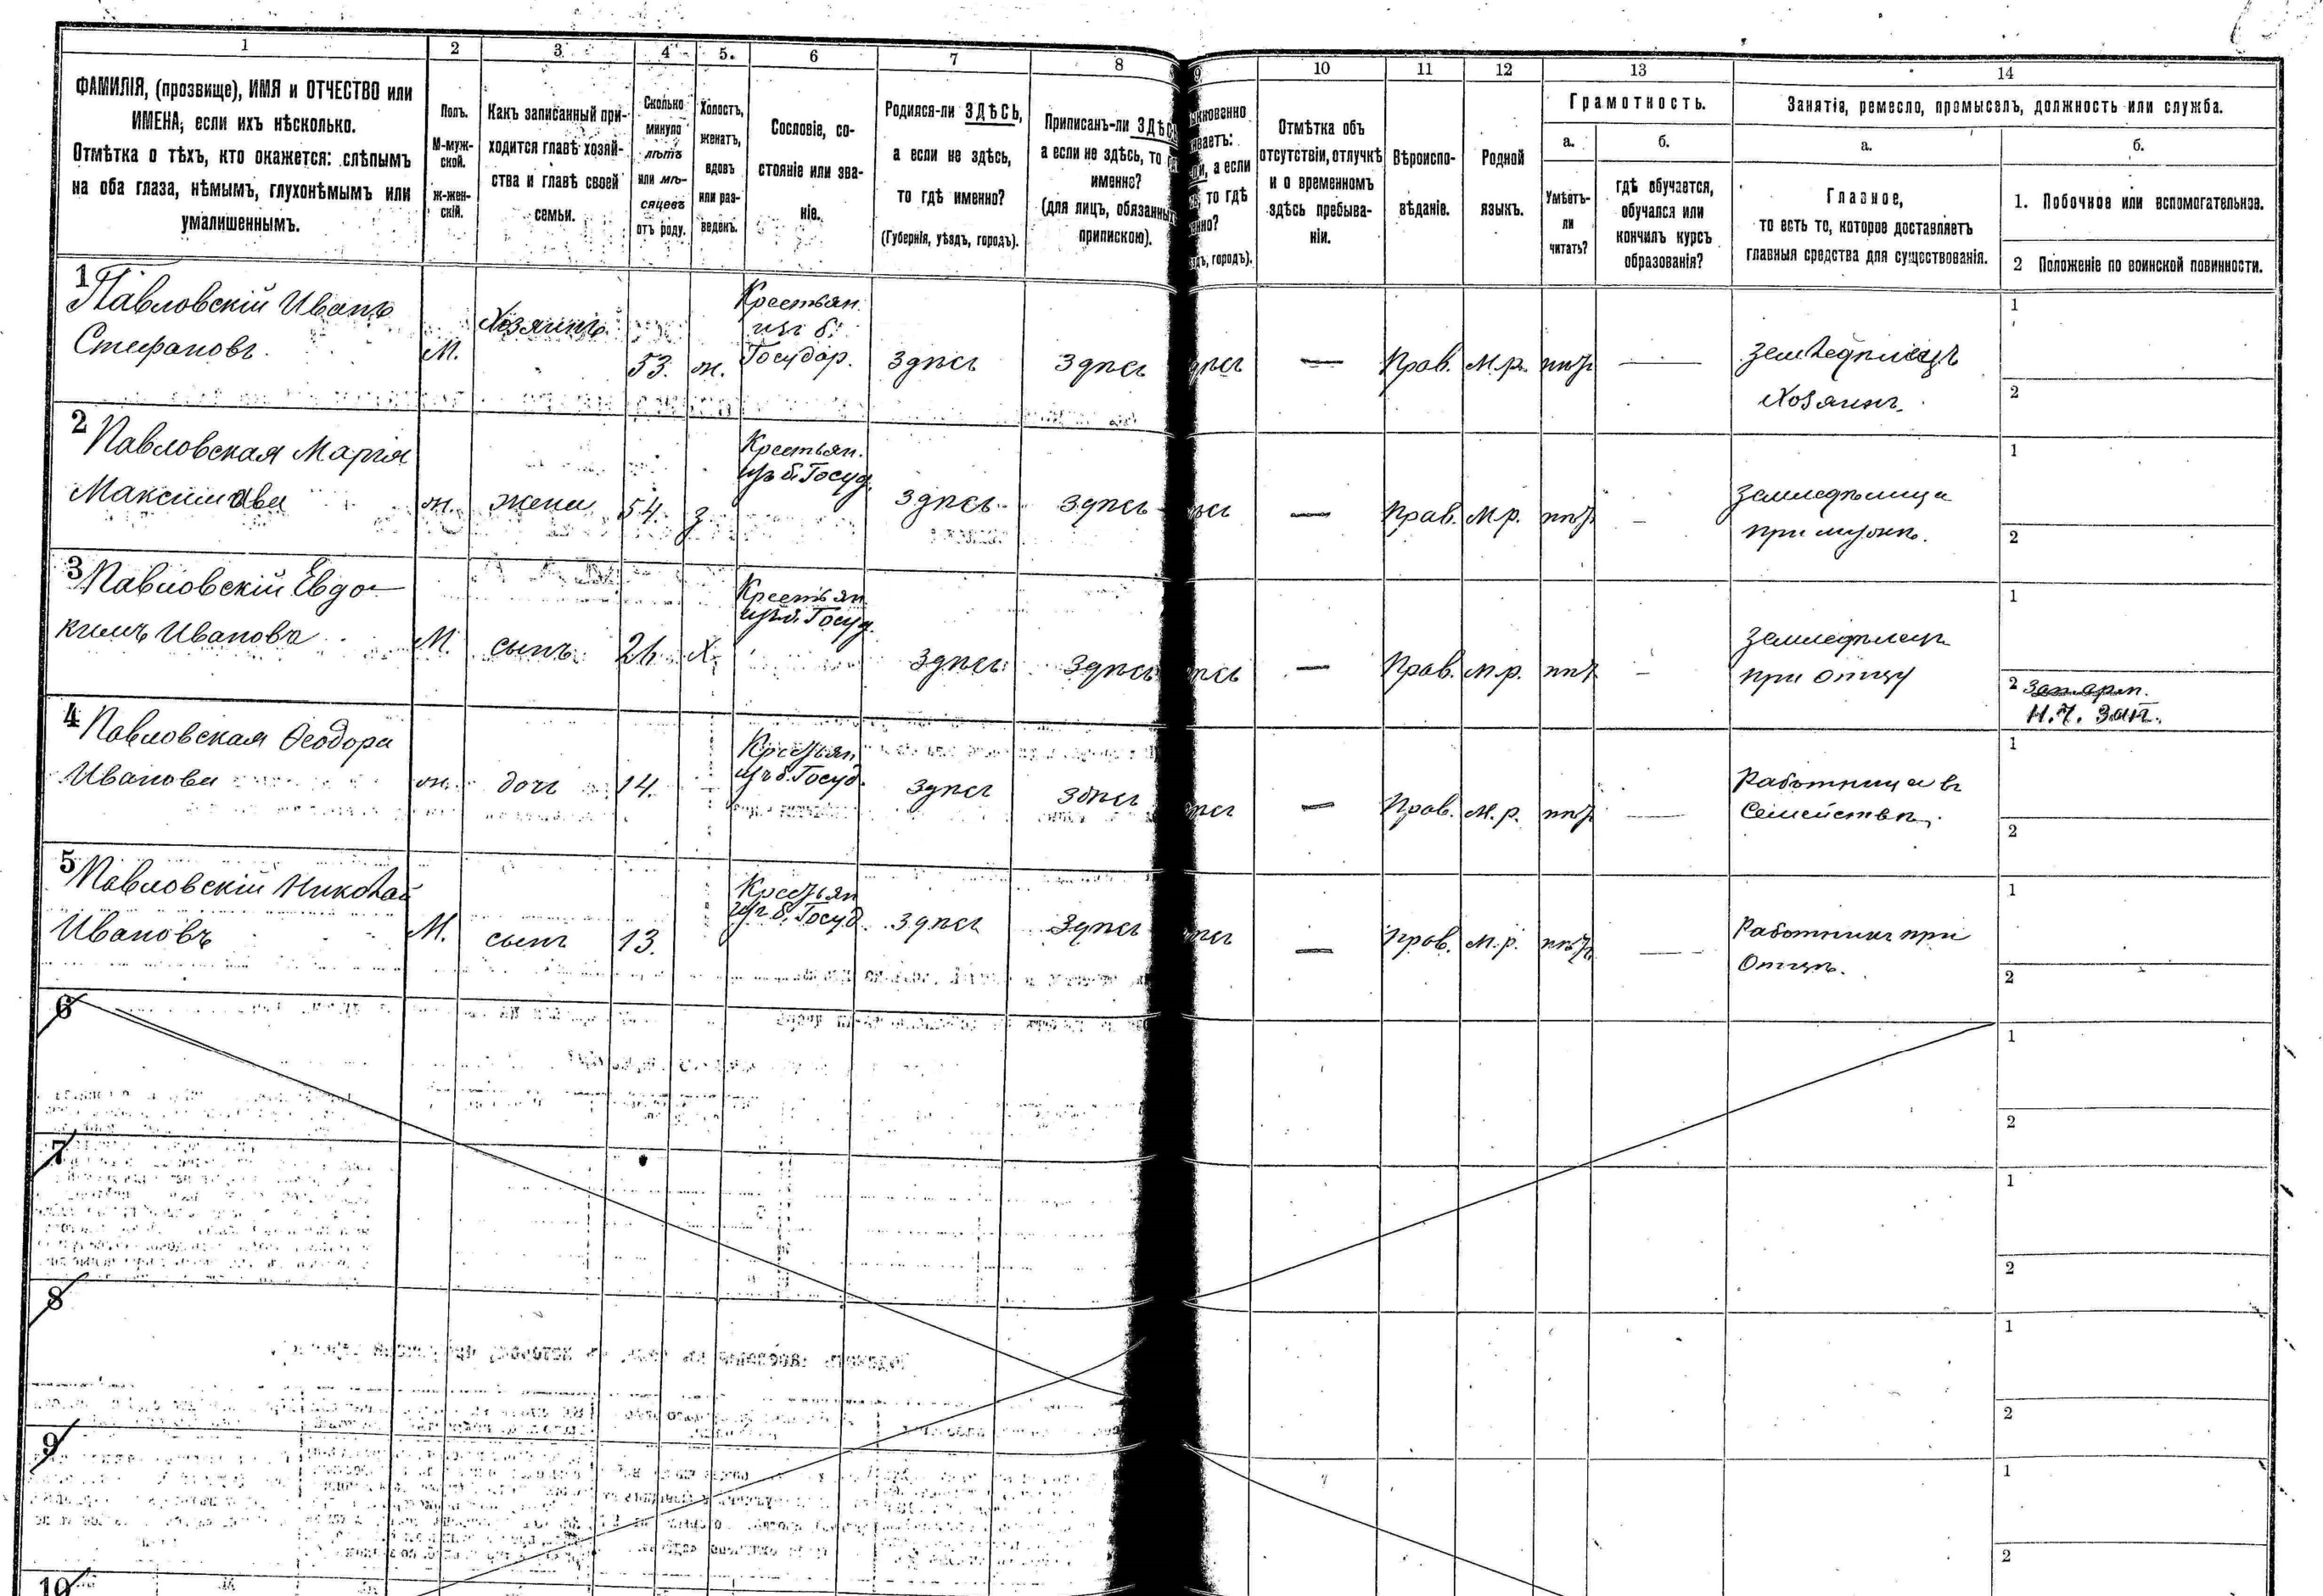 1 2 3 4 5. 6 7 8 9 10 11 12 13 14
ФАМИЛІЯ, (прозвище), ИМЯ и ОТЧЕСТВО или
ИМЕНА, если ихъ нѣсколько.
Отмѣтка о тѣхъ, кто окажется: слѣпымъ
на оба глаза, нѣмымъ, глухонѣмымъ или
умалишеннымъ.
Полъ.
М-муж-
ской.
ж-жен-
скій.
Какъ записанный при-
ходится главѣ хозяй-
ства и главѣ своей
семьи.
Сколько
минуло
лѣтъ
или мѣ-
сяцевъ
отъ роду.
Холостъ,
женатъ,
вдовъ
или раз-
веденъ.
Сословіе, со-
стояніе или зва-
ніе.
Родился-ли ЗДѢСЬ,
а если не здѣсь,
то гдѣ именно?
(Губернія, уѣздъ, городъ).
Приписанъ-ли ЗДѢСЬ
а если не здѣсь, то
именно?
(для лицъ, обязанныхъ
припискою).
кновенно
ваетъ:
а если
то гдѣ
нно?
городъ).
Отмѣтка объ
отсутствіи, отлучкѣ
и о временномъ
здѣсь пребыва-
ніи.
Вѣроиспо-
вѣданіе.
Родной
языкъ.
Грамотность.
а.
Умѣетъ-
ли
читать?
б.
гдѣ обучается,
обучался или
кончилъ курсъ
образованія?
Занятіе, ремесло, промыселъ, должность или служба.
а.
Главное,
то есть то, которое доставляетъ
главныя средства для существованія.
б.
1. Побочное или вспомогательное.
2 Положеніе по воинской повинности.
1 Павловскій Иванъ
Стефановъ.
М.
Хозяинъ
53.
ж.
Крестьян.
изъ б.
Государ.
здѣсь
здѣсь
—
Прав.
м.р.
нѣтъ
—
земледѣлецъ
Хозяинъ.
1
2
2 Павловская Марія
Максимова
ж.
жена
54.
з
Крестьян.
изъ б. Госуд.
здѣсь
здѣсь
—
Прав.
м.р.
нѣтъ
—
земледѣлица
при мужѣ.
1
2
3 Павловскій Евдо-
кимъ Ивановъ
М.
сынъ
21.
Х.
Крестьян
изъ б. Госуд.
здѣсь
здѣсь
—
Прав.
м.р.
нѣтъ
—
земледѣлецъ
при отцу
1
2 Зап арм.
Н.Ч. Зап.
4 Павловская Ѳеодора
Иванова
ж.
дочь
14.
Крестьян
изъ б. Госуд.
здѣсь
здѣсь
—
Прав.
м.р.
нѣтъ
—
Работница въ
Семействѣ.
1
2
5 Павловскій Николай
Ивановъ
М.
сынъ
13.
Крестьян
изъ б. Госуд
здѣсь
здѣсь
—
прав.
м.р.
нѣтъ
—
Работникъ при
Отцѣ.
1
2
6
1
2
7
1
2
8
1
2
9
1
2
10